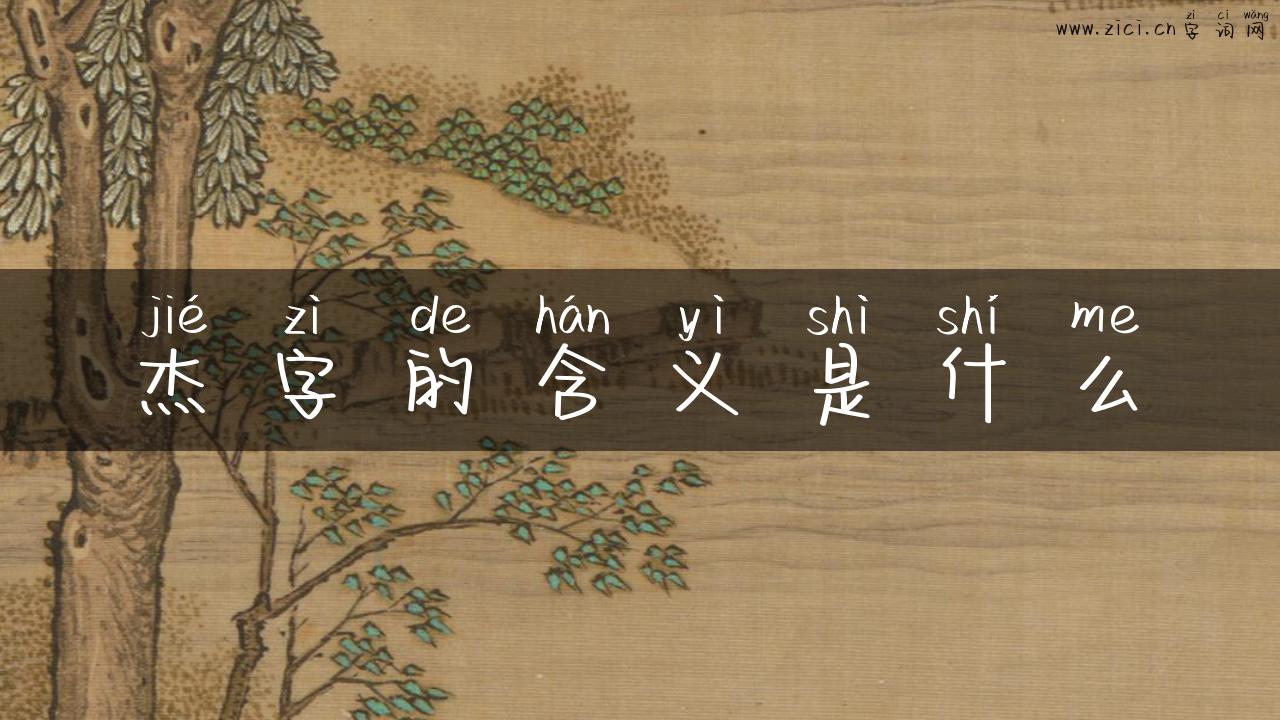 zì cí wǎng
www.zici.cn 字词网
jié zì de hán yì shì shí me
杰字的含义是什么